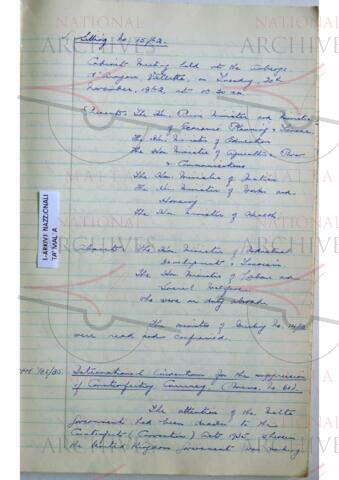 Sitting No. 15/62.
Cabinet Meeting held at the Auberge
d'Aragon, Valletta, on Tuesday, 20th
November, 1962, at 10.30 a.m.
Present: The Hon. Prime Minister and Minister
of Economic Planning & Finance
The Hon. Minister of Education
The Hon. Minister of Agriculture, Power
& Communications
The Hon. Minister of Justice
The Hon. Minister of Works and
Housing
The Hon. Minister of Health
Absent: The Hon. Minister of Industrial
Development & Tourism
The Hon. Minister of Labour and
Social Welfare
who were on duty abroad.
The minutes of Meeting No. 14/62
were read and confirmed.
International Convention for the suppression
of Counterfeiting Currency. (Memo. No. 61)
The attention of the Malta
Government had been drawn to the
Counterfeit (Convention) Act, 1935, whereby
the United Kingdom Government was seeking
L-ARKIVJI NAZZJONALI
TA' MALTA
NATIONAL
ARCHIVES
MALTA